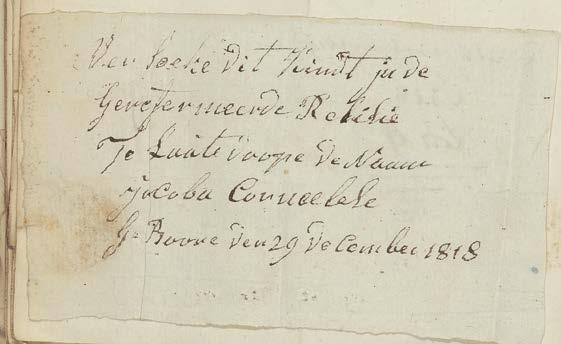 Ver soeke dit kindt in de
Gerefermeerde Relisie
Te Laate doope de Naam
Jacoba Cornelele
Ge Boore den 29 December 1818